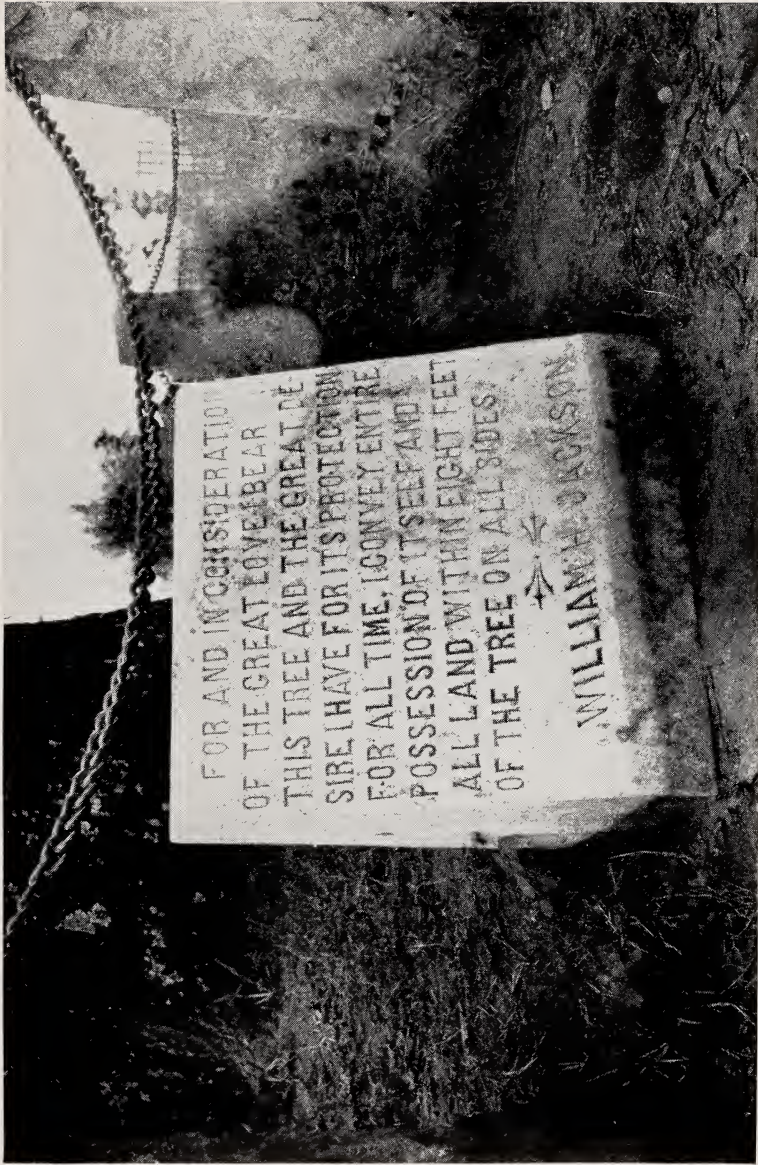 FOR AND IN CONSIDERATION
OF THE GREAT LOVE I BEAR
THIS TREE AND THE GREAT DE-
SIRE I HAVE FOR ITS PROTECTION
FOR ALL TIME, I CONVEY ENTIRE
POSSESSION OF ITSELF AND
ALL LAND WITHIN EIGHT FEET
OF THE TREE ON ALL SIDES
WILLIAM H. JACKSON